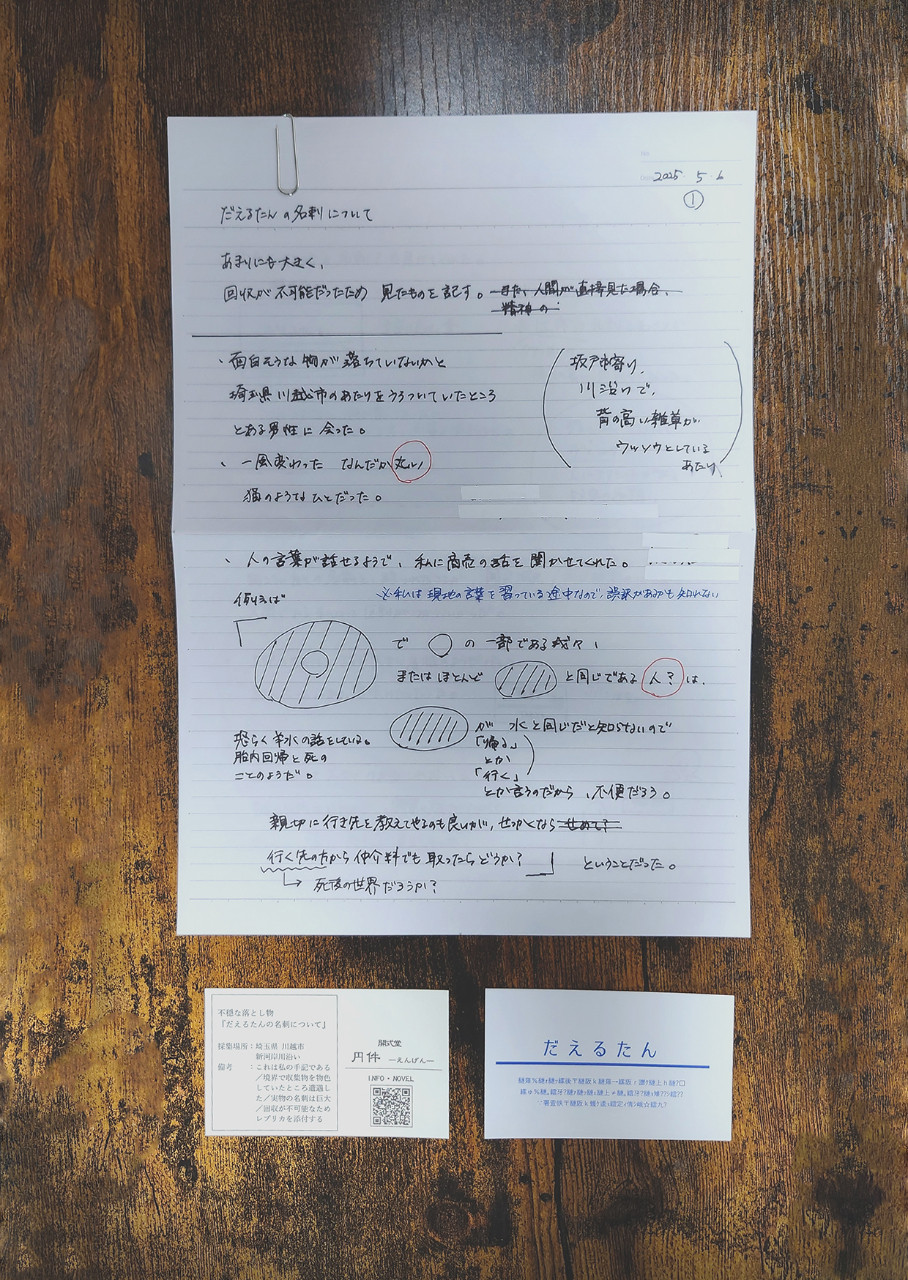 2025 5 6
①
だえるたんの名刺について
あまりにも大きく、
回収が不可能だったため 見たものを記す。また、人間が直接見た場合、
精神の
・面白そうな物が落ちていないかと
埼玉県川越市のあたりをうろついていたところ
とある男性に会った。
坂戸市寄り、
川沿いで、
背の高い雑草が
ウッソウとしている
あたり
・一風変わった なんだか丸い
猫のようなひとだった。
・人の言葉が話せるようで、私に商売の話を聞かせてくれた。
※私は現地の言葉を習っている途中なので、誤訳があるかも知れない
例えば
で の一部である我々、
またはほとんど と同じである人?は、
が 水と同じだと知らないので
「帰る」
とか
「行く」
とか言うのだから、不便だろう。
恐らく羊水の話をしている。
胎内回帰と死の
ことのようだ。
親切に行き先を教えてやるのも良いが、せっかくなら せめて?
行く先の方から仲介料でも取ったらどうか? ということだった。
死後の世界だろうか?
不穏な落とし物
『だえるたんの名刺について』
採集場所:埼玉県 川越市
新河岸川沿い
備考 :これは私の手記である
/境界で収集物を物色
していたところ遭遇し
た/実物の名刺は巨大
/回収が不可能なため
レプリカを添付する
闇式堂
円件 ―えんげん―
INFO・NOVEL
だえるたん